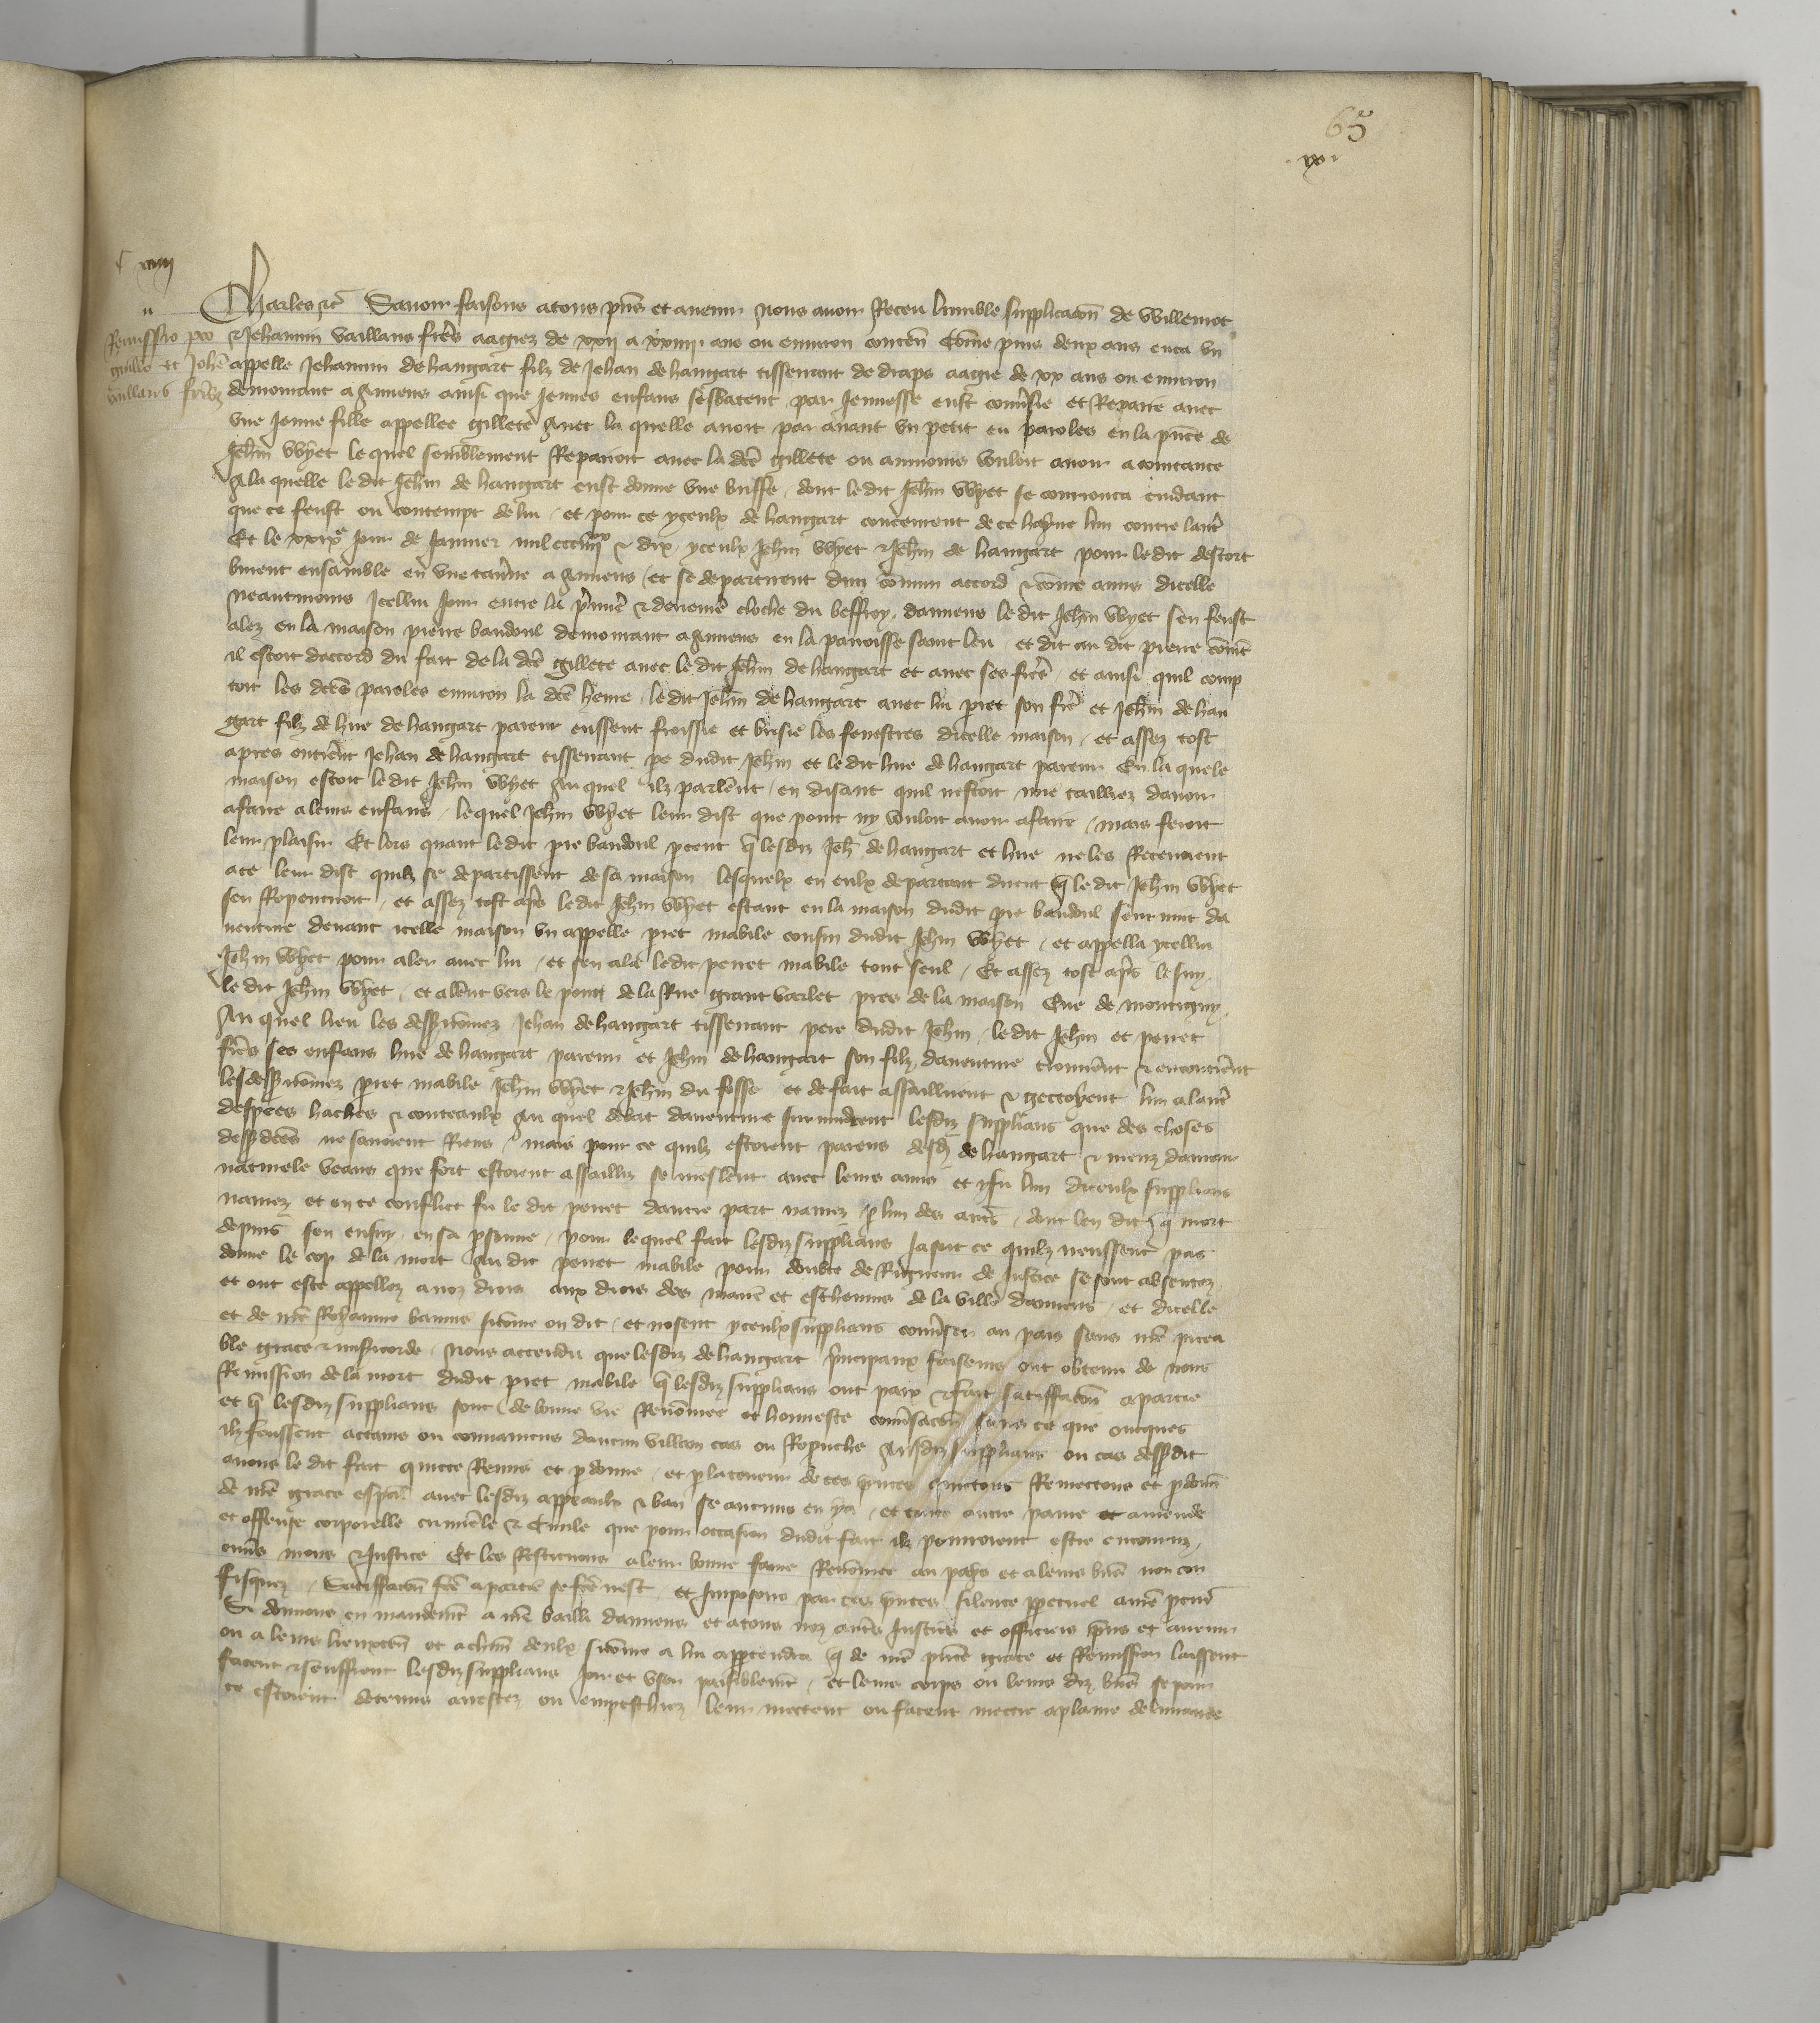 65
Charles etc Savoir faisons a tous pns et avenir Nous avoir Receu lumble supplicacon de Willemot
Remissio pro
guillo et Johe
vaillans fribz
& Jehannin vaillans freres aagiez de xxii a xxiiii ans ou environ conten Come puis deux ans enca un
appelle Jehannin de hangart filz de Jehan de hangart tisserant de draps aagie de xx ans ou environ
demourant a Amiens ainsi que Jeunes enfans sesbatent par Jeunesse eust converse et Repaire avec
une Jeune fille appellee gillete Avec la quelle avoit par avant un petit eu paroles en la pnce de
Jehin Wyet le quel semblement Repairoit avec la dce gillete ou aumoins vouloit avoir acointance
A la quelle le dit Jehin de hangart eust donne une buffe dont le dit Jehin Wyet se courrouca cuidant
que ce feust ou contempt de lui et pour ce yceulx de hangart conceurent de ce hayne lun contre lautre
Et le xxixe Jour de Janvier mil ccc iiiixx & dix yceulx Jehin Wyet & Jehin de hangart pour le dit descort
burent ensamble en une taverne a Amiens et se departirent dun comun accord & come amis dicelle
Neantmoins Icellui Jour entre la premiere & derreniere cloche du beffroy damiens le dit Jehin Wyet sen feust
alez en la maison pierre baudoul demourant a Amiens en la paroisse saint leu et dit au dit pierre coment
il estoit daccord du fait de la dce gillete avec le dit Jehin de hangart et avec ses freres et ainsi quil comp
toit les dces paroles environ la dce heure le dit Jehin de hangart avec lui pret son frere et Jehin de han
gart filz de hue de hangart parent eussent froissie et brisie les fenestres dicelle maison et assez tost
apres entrerent Jehan de hangart tisserant pe dudit Jehin et le dit hue de hangart parent En la quele
maison estoit le dit Jehin Wyet Auquel ilz parlerent en disant quil nestoit mie tailliez davoir
afaire a leurs enfans lequel Jehin Wyet leur dist que point ny vouloit avoir afaire mais feroit
leur plaisir Et lors quant le dit pre baudoul percut q lesdiz Jeh de hangart et hue ne les Recevoient
a ce leur dist quilz se departissent de sa maison lesquelx en eulx departant dirent q le dit Jehin Wyet
sen Repentiroit et assez tost apres le dit Jehin Wyet estant en la maison dudit pre baudoul seurvint da
venture devant icelle maison un appelle pret mabile cousin dudit Jehin Wyet et appella ycellui
Jehin Wyet pour aler avec lui et sen ala ledit perret mabile tout seul Et assez tost apres le suy
le dit Jehin Wyet et alerent vers le pont de la Rue grant varlet pres de la maison Eue de montigny
Au quel lieu les dessusnomez Jehan de hangart tisserant pere dudit Jehin le dit Jehin et perret
freres ses enfans hue de hangart parent et Jehin de hangart son filz daventure trouverent & encontrerent
les dessusnomez pret mabile Jehin Wyet & Jehin du fosse et de fait assaillirent & gectoyent lun a lautre
despees haches & couteaulx Au quel debat daventure survindrent lesdiz supplians que des choses
dessusdces ne savoient Riens mais pour ce quilz estoient parens desdiz de hangart & meuz damour
naturele veans que fort estoient assailliz se meslerent avec leurs amis et y fu lun diceulx supplians
navrez et en ce conflict fu le dit perret dautre part navrez p lun des autres dont len dit q mort
depuis sen ensuy en sa personne pour lequel fait lesdiz supplians Jasoit ce quilz neussent pas
donne le cop de la mort Au dit perret mabile pour doubte de Rigueur de Justice se sont absentez
et ont este appellez a noz drois aux drois des maire et eschevins de la ville damiens et dicelle
et de nre Royaume bannis sicome on dit et nosent yceulx supplians converser au pais sans nre picea
ble grace & misericorde Nous attendu que lesdiz de hangart principaulx faiseurs ont obtenu de nous
Remission de la mort dudit pret mabile q lesdiz supplians ont paix & fait satisfacon a partie
et q lesdiz supplians sont de bonne vie Renomee et honneste conversacon sans ce que oncques
ilz feussent actains ou convaincus daucun villain cas ou Reprouche Ausdiz supplians ou cas dessusdit
avons le dit fait quicte Remis et p donne et p la teneur de ces pntes quictons Remectons et pdonn
de nre grace espal avec lesdiz appeaulx & ban se aucuns en y a et toute autre paine et amende
et offense corporelle criminele & Civile que pour occasion dudit fait ilz pourroient estre encouruz
envers nous & Justice Et les Restituons a leur bonne fame Renomee au pays et a leurs biens non con
fisquez Satisfacon fce a partie se fce nest et Imposons par ces pntes silence perpetuel a nre procur
Si donnons en mandement a nre bailli damiens et a tous noz autres Justiciers et officiers pns et avenir
ou a leurs lieuxten et a chun deulx sicome a lui appartendra q de nre pnte grace et Remission laissent
facent & seuffrent lesdiz supplians Joir et user paisiblement et leurs corps ou leurs diz biens se pour
ce estoient detenus arrestez ou empeschiez leur mectent ou facent mectre a plaine delivrance